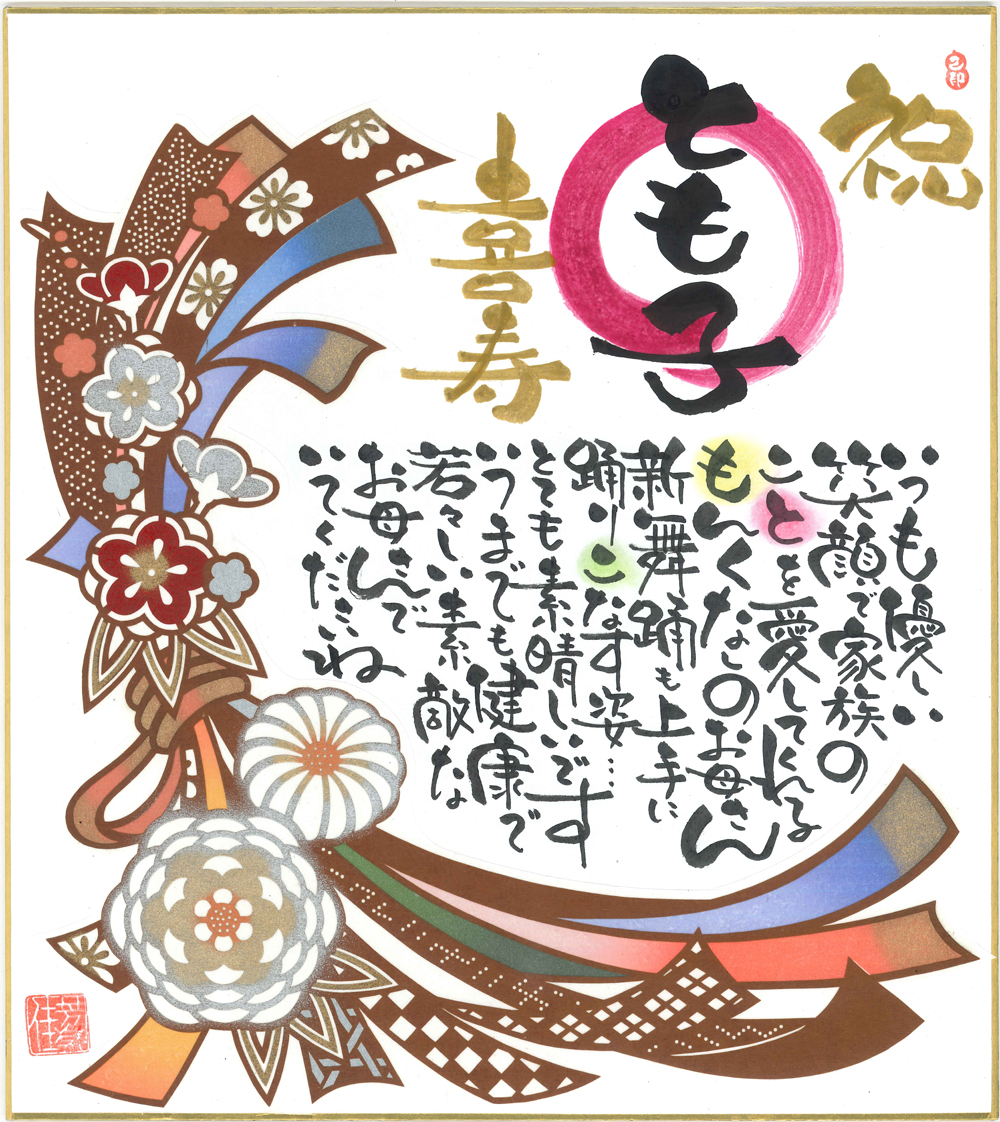 祝
とも子
喜寿
いつも優しい
笑顔で家族の
ことを愛してくれる
もんくなしのお母さん
新舞踊も上手に
踊りこなす姿……
とても素晴しいです
いつまでも健康で
若々しい素敵な
お母さんで
いてくださいね